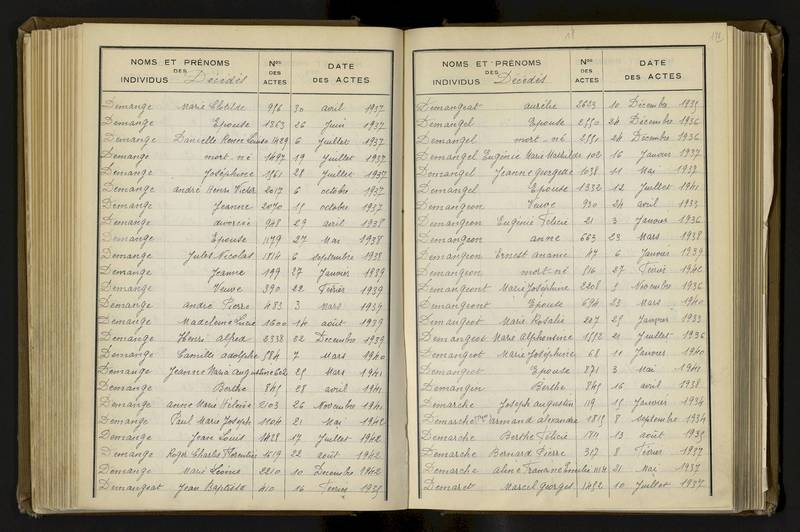 NOMS ET PRÉNOMS DES INDIVIDUS Décédés Nos DES ACTES DATE DES ACTES
Demange Marie Clotilde 956 30 avril 1937
Demange Epouse 1363 26 Juin 1937
Demange Danielle Renée Louise 1429 6 Juillet 1937
Demange mort-né 1497 19 Juillet 1937
Demange Joséphine 1561 28 Juillet 1937
Demange andré Henri Victor 2017 6 octobre 1937
Demange Jeanne 2070 15 octobre 1937
Demange divorcée 948 29 avril 1938
Demange Epouse 1179 27 Mai 1938
Demange Jules Nicolas 1814 6 septembre 1938
Demange Jeanne 199 27 Janvier 1939
Demange Veuve 390 22 Février 1939
Demange andré Pierre 483 3 Mars 1939
Demange Madeleine Lucie 1600 14 août 1939
Demange Henri alfred 2338 22 Decembre 1939
Demange Camille adolphe 584 7 Mars 1940
Demange Jeanne Maria Augustine 602 25 Mars 1941
Demange Berthe 845 28 avril 1941
Demange anne Marie Helène 2103 26 Novembre 1941
Demange Paul Marie Joseph 1104 21 Mai 1942
Demange Jean Louis 1428 17 Juillet 1942
Demange Roger Charles Florentin 1619 22 août 1942
Demange Marie Louise 2210 10 Decembre 1942
Demangeat Jean Baptiste 410 16 Février 1935
NOMS ET PRÉNOMS DES INDIVIDUS Décédés Nos DES ACTES DATE DES ACTES
Demangeat aurélie 2623 10 Décembre 1935
Demangel Epouse 2550 24 Décembre 1936
Demangel mort-né 2551 24 Décembre 1936
Demangel Eugénie Marie Mathilde 102 16 Janvier 1937
Demangel Jeanne georgette 1038 11 Mai 1937
Demangel Epouse 1332 12 Juillet 1941
Demangeon Veuve 930 24 avril 1933
Demangeon Eugénie Félicie 21 3 Janvier 1936
Demangeon anne 663 23 Mars 1938
Demangeon Ernest ananie 47 6 Janvier 1939
Demangeon mort-né 516 27 Février 1942
Demangeont Marie Joséphine 2208 5 Novembre 1936
Demangeont Epouse 694 23 Mars 1940
Demangeot Marie Rosalie 227 25 Janvier 1933
Demangeot Marie Alphonsine 1552 21 Juillet 1936
Demangeot Marie Joséphine 68 11 Janvier 1940
Demangeot Epouse 871 3 Mai 1941
Demangin Berthe 845 16 avril 1938
Demarche Joseph augustin 119 15 Janvier 1934
Demarche armand alexandre 1815 8 septembre 1934
Demarche Berthe Félicie 1711 13 août 1935
Demarche Bernard Pierre 317 8 Février 1937
Demarche aline 1114 21 Mai 1937
Demaret Marcel georges 1452 10 Juillet 1937